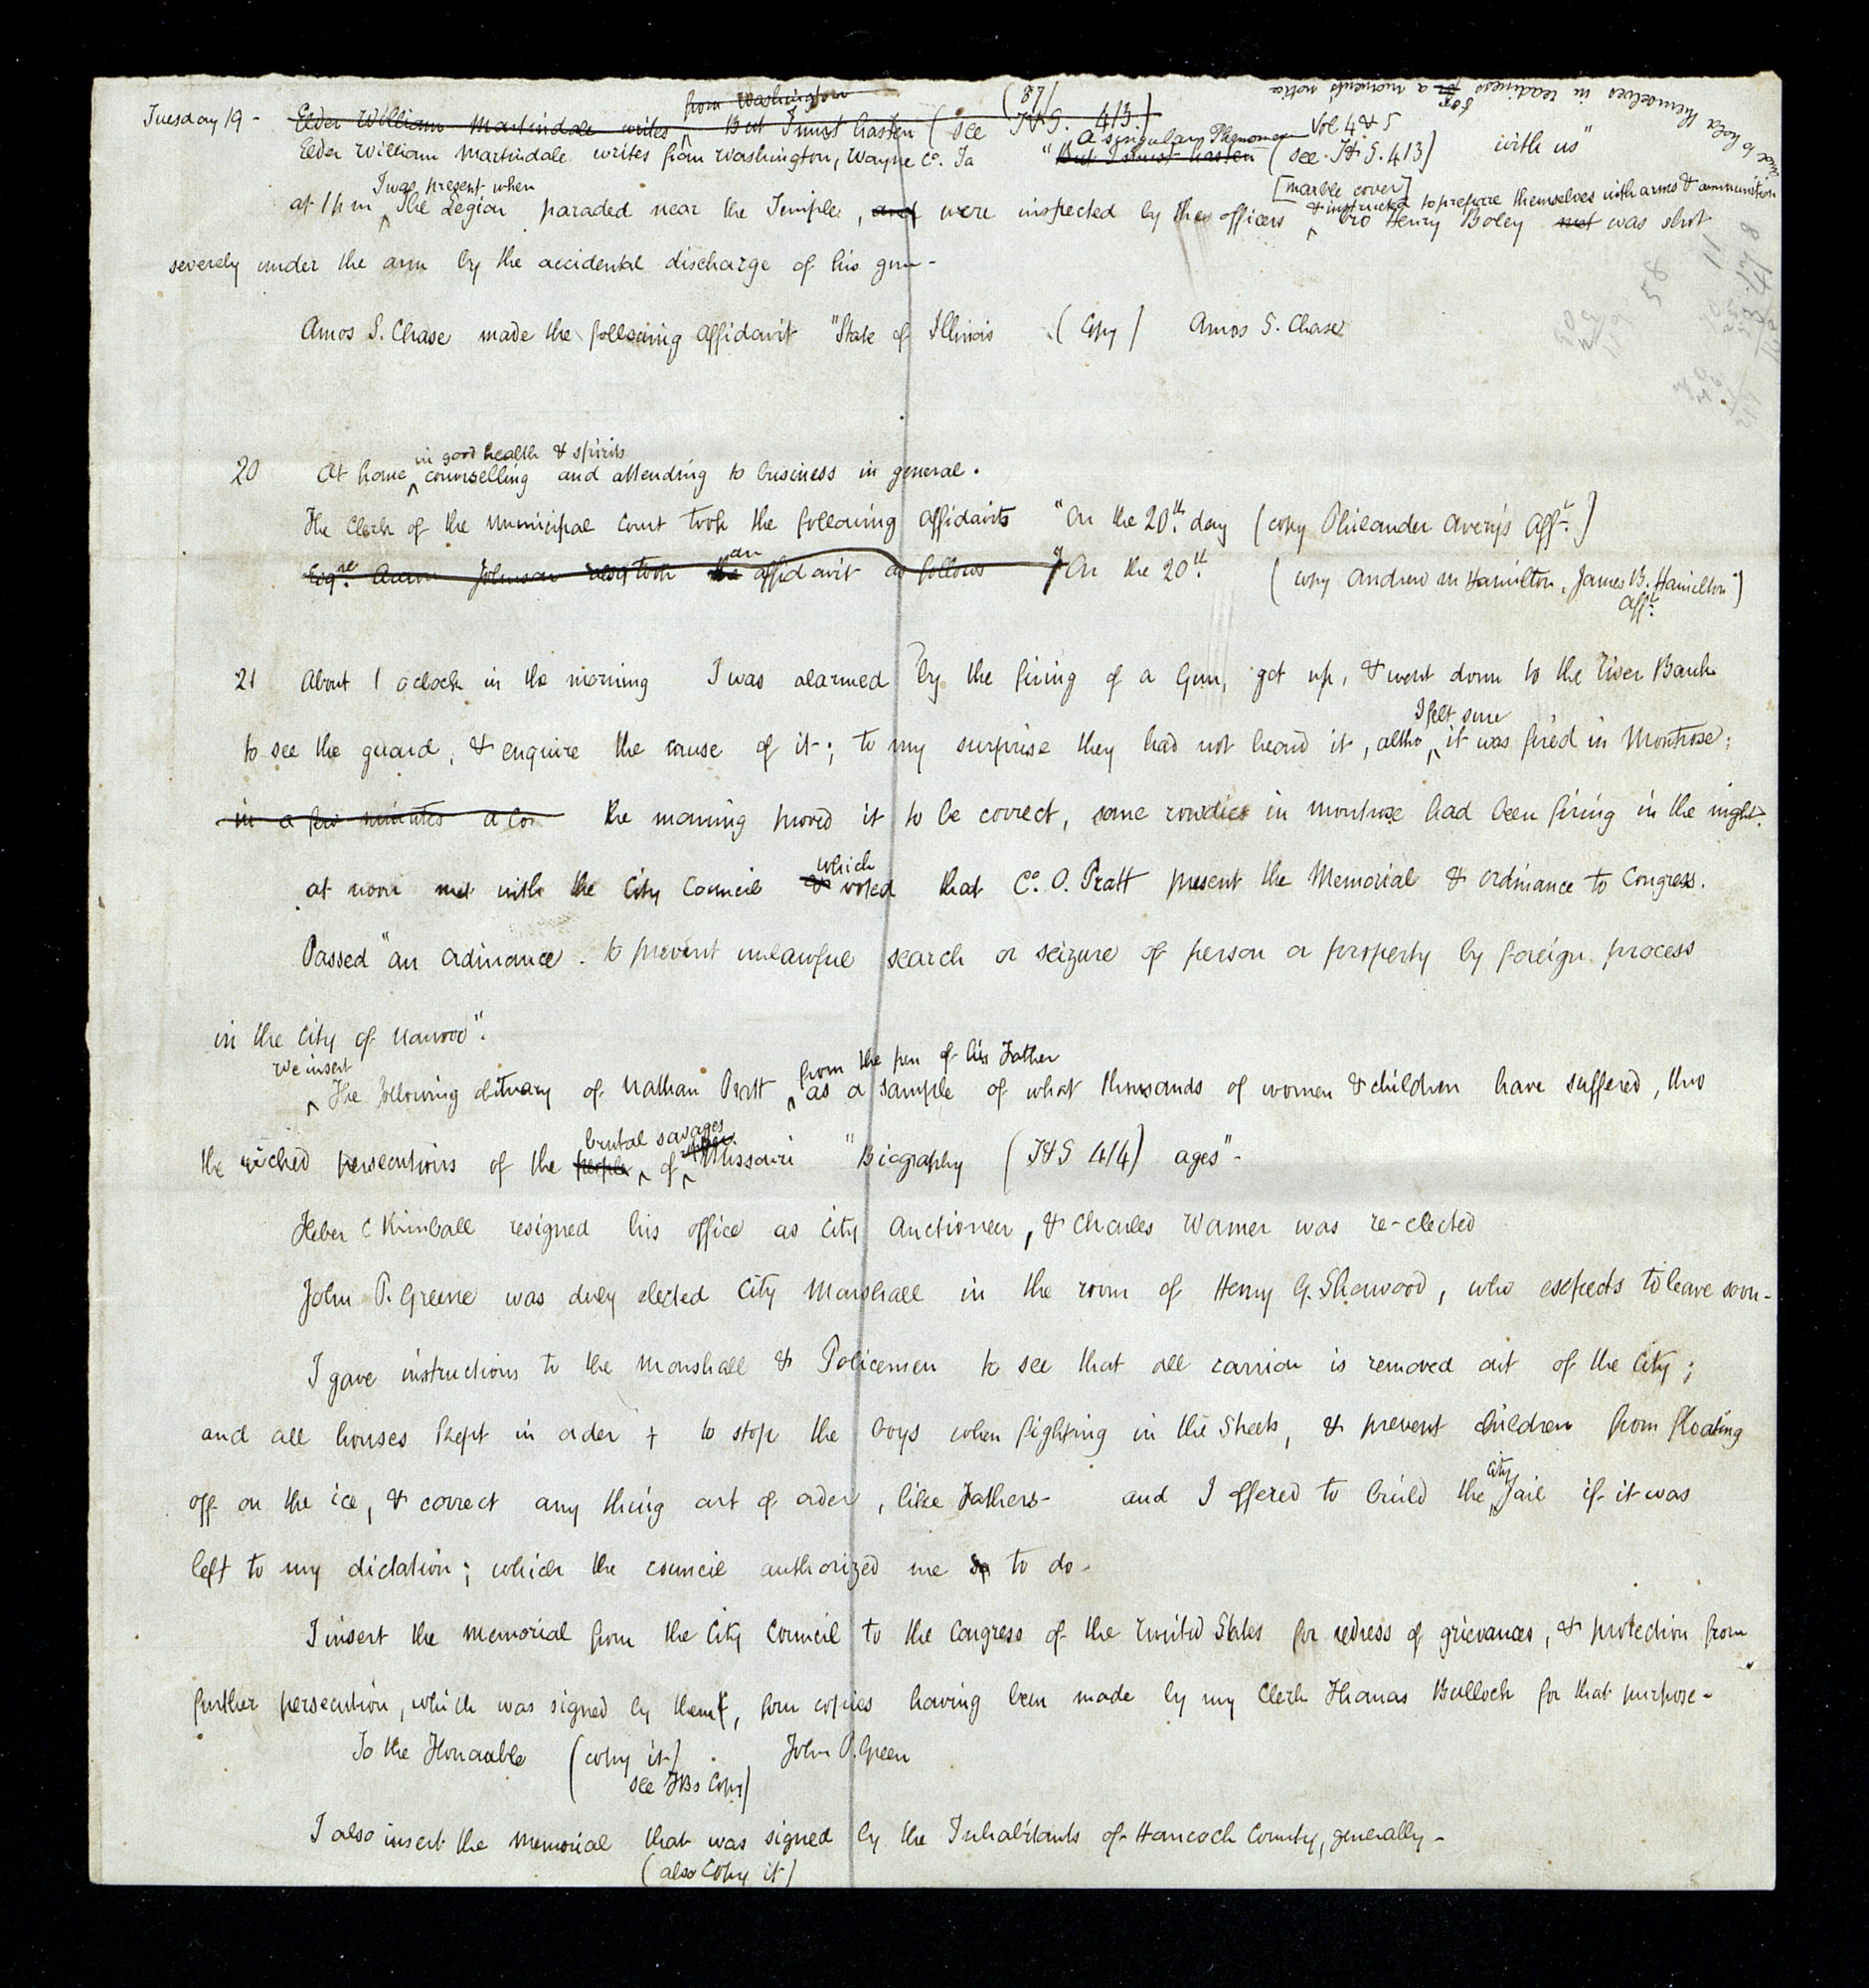 Tuesday 19 - Elder William Martindale writes from Washington But I must hasten (see T&S. 413.)
(87/
A singular Phenomen Vol 4 & 5
Elder William Martindale writes from Washington, Wayne Co. Ia "But I must hasten (see. T&S. 413) with us"
I was present when [marble cover]
& instructed to prepare themselves with arms & ammunition
and to hold themselves in readiness for a moments notice
at 1 p m The Legion paraded near the Temple, and were inspected by the officers bro Henry Boley met was shot
severely under the arm by the accidental discharge of his gun-
Amos S. Chase made the following affidavit "State of Illinois (Copy) Amos S. Chase
in good health & spirits
20 At home counselling and attending to business in general.
The Clerk of the Municipal Court took the following affidavits "On the 20th. day (copy Philander Avery's Afft.)
an
Esqre. Aaron Johnson also took the affidavit as follows "On the 20th. (copy Andrew M Hamilton, James B. Hamilton")
Afft.
21 About 1 oclock in the morning I was alarmed by the firing of a Gun, got up, & went down to the River Bank
I felt sure
to see the guard, & enquire the cause of it; to my surprise they had not heard it, altho it was fired in Montrose;
in a few minutes a co the morning proved it to be correct, some rowdies in Montrose had been firing in the night.
which
at noon met with the City Council & voted that Co. O. Pratt present the Memorial & Ordinance to Congress.
Passed "an Ordinance. to prevent unlawful search or seizure of person or property by foreign process
in the City of Nauvoo".
We insert from the pen of his Father
The following obituary of Nathan Pratt as a sample of what thousands of women & children have suffered, thro
brutal savages
the wicked persecutions of the people of Missouri "Biography (T&S 414) ages"-
Heber C Kimball resigned his office as City Auctioneer, & Charles Warner was re-elected
John P. Greene was duly elected City Marshall in the room of Henry G. Sherwood, who expects to leave soon-
I gave instructions to the Marshall & Policemen to see that all carrion is removed out of the City;
and all houses kept in order & to stop the boys when fighting in the Streets, & prevent children from floating
city
off on the ice, & correct any thing out of order, like Fathers- and I offered to build the Jail if it was
left to my dictation; which the council authorized me so to do-
I insert the Memorial from the City Council to the Congress of the United States for redress of grievances, & protection from
further persecution, which was signed by them, four copies having been made by my Clerk Thomas Bullock for that purpose-
To the Honorable (copy it) John P. Green
see TBs Copy)
I also insert the Memorial that was signed by the Inhabitants of Hancock County, generally-
(also Copy it)